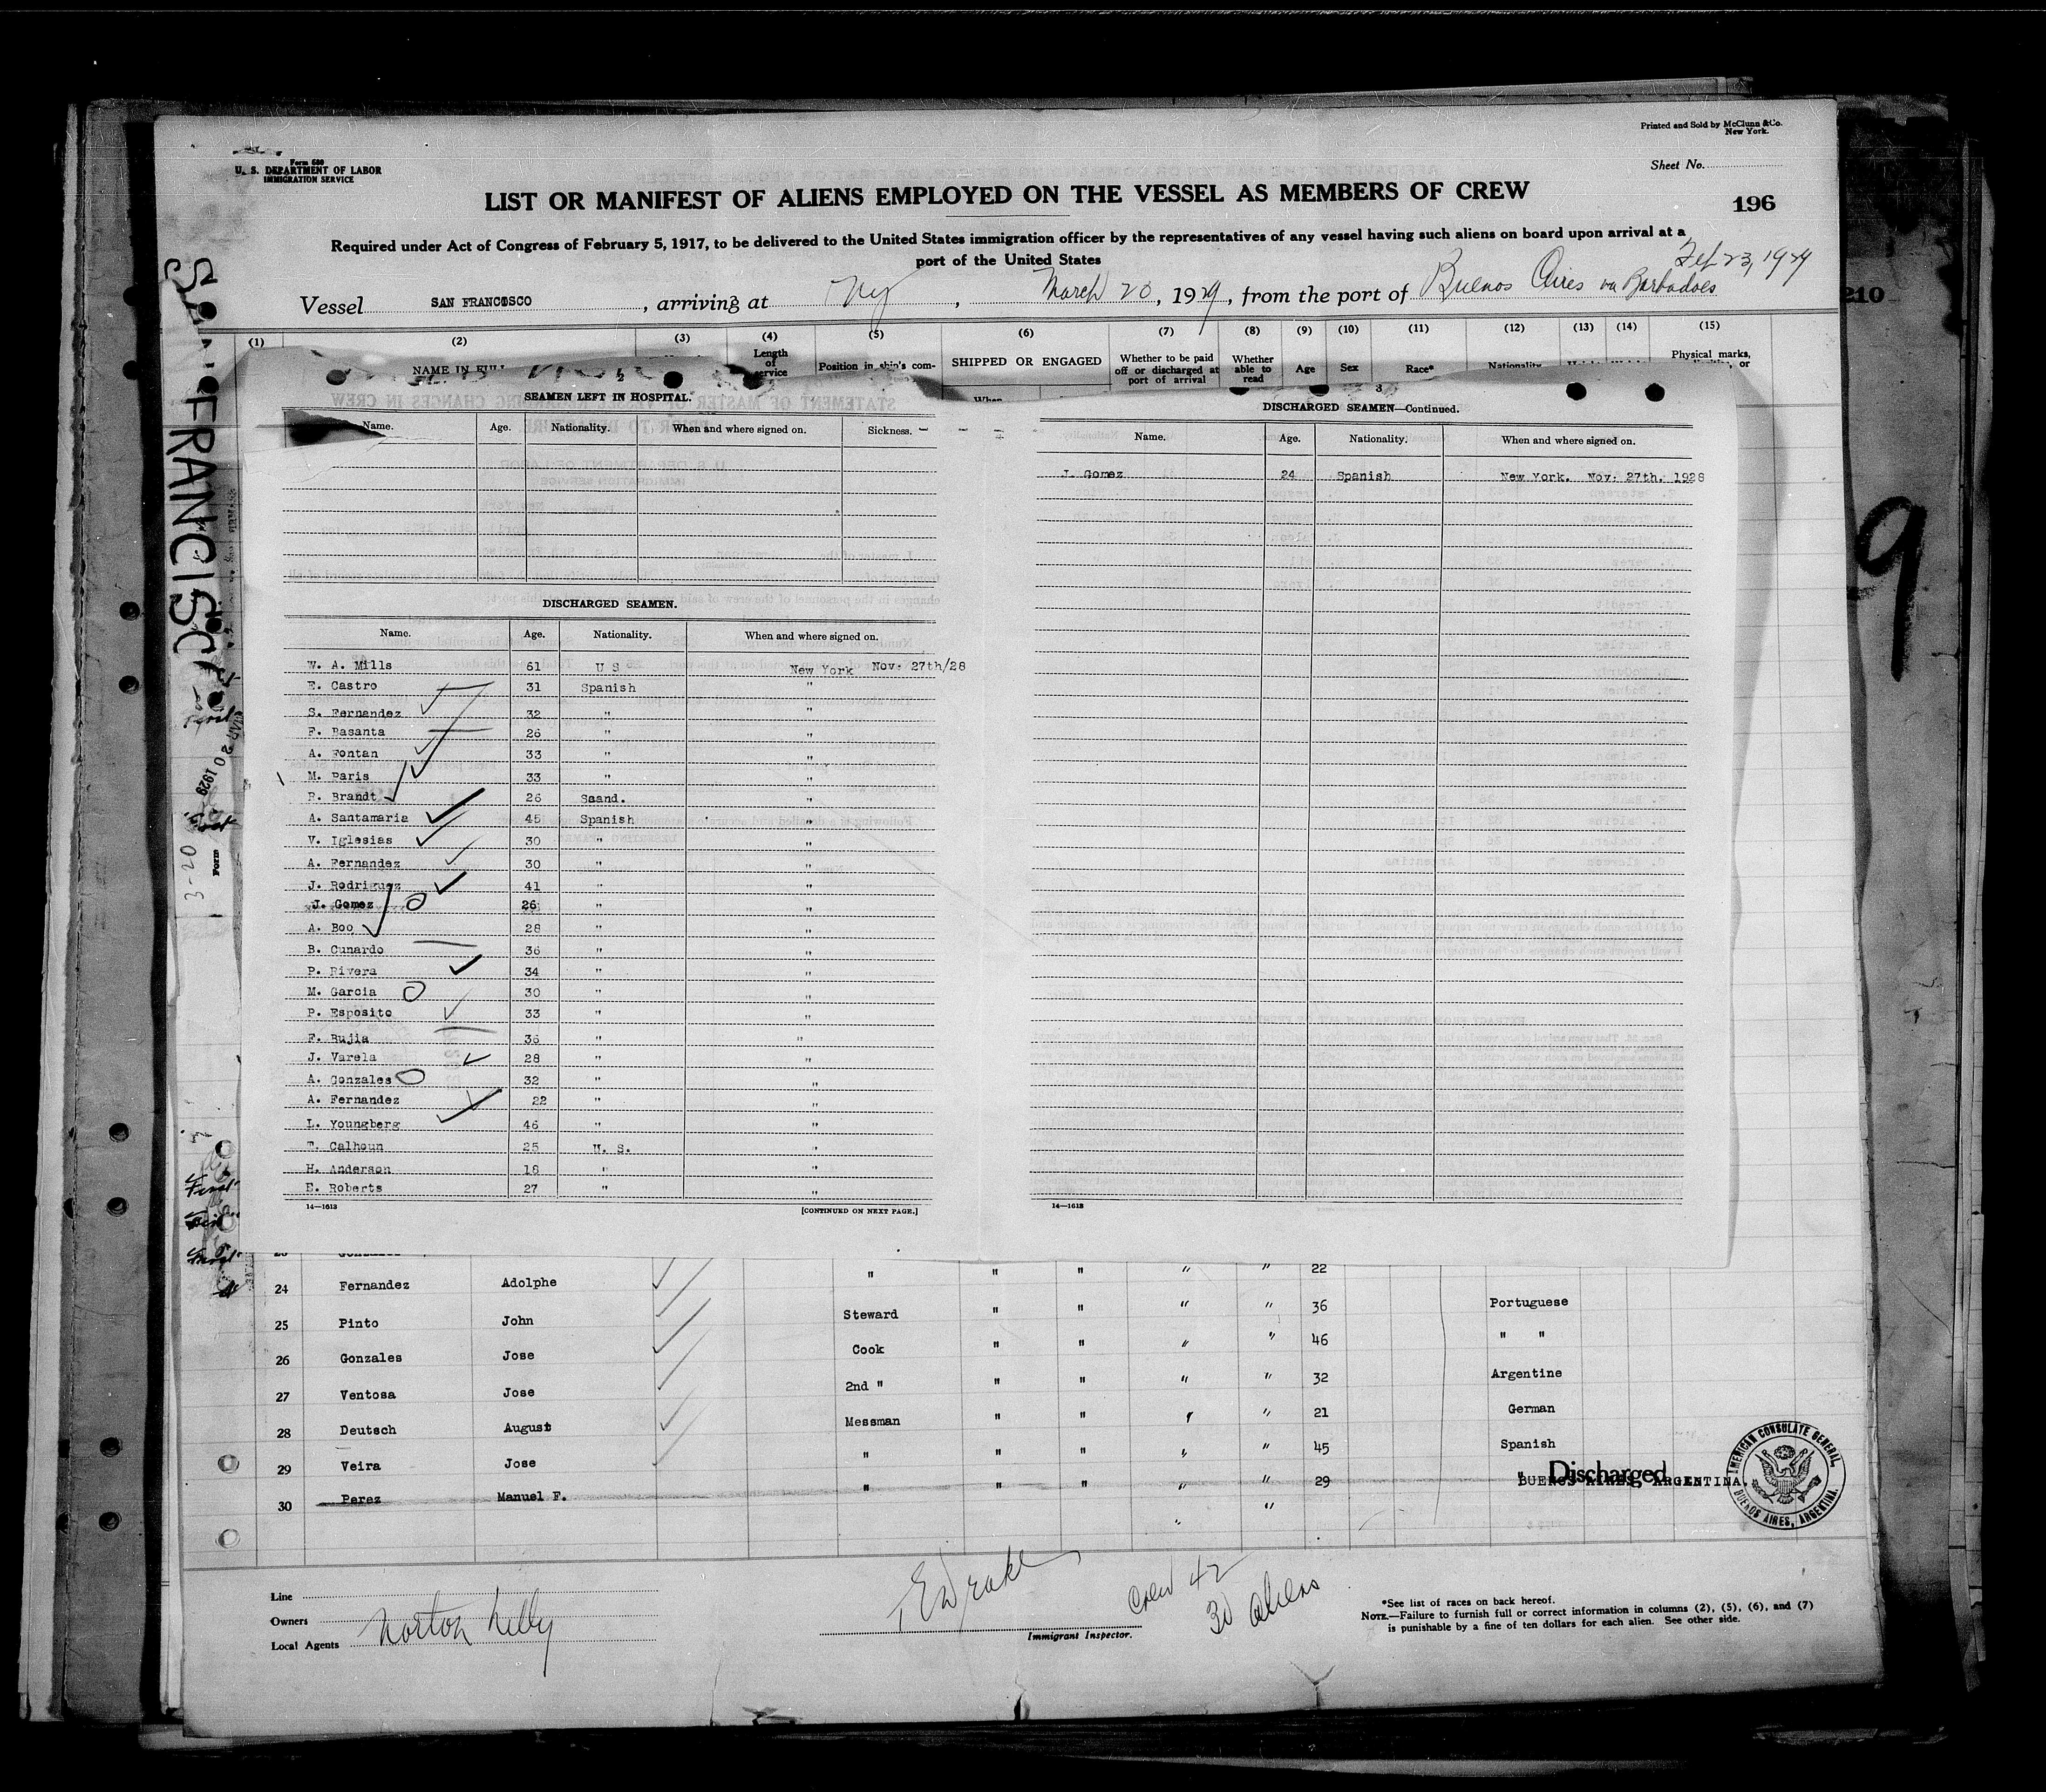 Printed and Sold by McClunn & Co.
New York.
Form 680
U. S. DEPARTMENT OF LABOR
IMMIGRATION SERVICE
Sheet No.
LIST OR MANIFEST OF ALIENS EMPLOYED ON THE VESSEL AS MEMBERS OF CREW
196
Required under Act of Congress of February 5, 1917, to be delivered to the United States immigration officer by the representatives of any vessel having such aliens on board upon arrival at a
port of the United States
Feb 23, 1929
Vessel SAN FRANCISCO, arriving at Ny, March 20, 1929, from the port of Buenos Aires via Barbados
210
(1) (2) (3) (4) (5) (6) (7) (8) (9) (10) (11) (12) (13) (14) (15)
NAME IN FULL Length of service Position in ship's com- SHIPPED OR ENGAGED Whether to be paid off or discharged at port of arrival Whether able to read Age Sex Race* Nationality Physical marks,
When
SAN FRANCISCO
9
SEAMEN LEFT IN HOSPITAL.
Name. Age. Nationality. When and where signed on. Sickness.
DISCHARGED SEAMEN.
Name. Age. Nationality. When and where signed on.
W. A. Mills 61 U S New York Nov. 27th/28
E. Castro 31 Spanish "
S. Fernandez 32 " "
F. Basanta 26 " "
A. Fontan 33 " "
M. Paris 33 " "
R. Brandt 26 Scand. "
A. Santamaria 45 Spanish "
V. Iglesias 30 " "
A. Fernandez 30 " "
J. Rodriguez 41 " "
J. Gomez 26 " "
A. Boo 28 " "
B. Cunardo 36 " "
P. Rivera 34 " "
M. Garcia 30 " "
P. Esposito 33 " "
F. Bujia 36 " "
J. Varela 28 " "
A. Gonzales 32 " "
A. Fernandez 22 " "
L. Youngberg 46 " "
T. Calhoun 25 U. S. "
H. Anderson 18 " "
E. Roberts 27 " "
14—1613 [CONTINUED ON NEXT PAGE.]
3
DISCHARGED SEAMEN—Continued.
Name. Age. Nationality. When and where signed on.
J. Gomez 24 Spanish New York. Nov. 27th. 1928
14—1613
24 Fernandez Adolphe " " " " " 22
25 Pinto John Steward " " " " 36 Portuguese
26 Gonzales Jose Cook " " " " 46 " "
27 Ventosa Jose 2nd " " " " " 32 Argentine
28 Deutsch August Messman " " " " 21 German
29 Veira Jose " " " " " 45 Spanish
30 Perez Manuel F. " " " " " 29 "
Discharged
BUENOS AIRES, ARGENTINA.
AMERICAN CONSULATE GENERAL
BUENOS AIRES, ARGENTINA.
MAR 20 1929
3-20
Line
Owners
Local Agents Norton Lilly
Immigrant Inspector.
Crew 42
30 aliens
*See list of races on back hereof.
NOTE.—Failure to furnish full or correct information in columns (2), (5), (6), and (7)
is punishable by a fine of ten dollars for each alien. See other side.